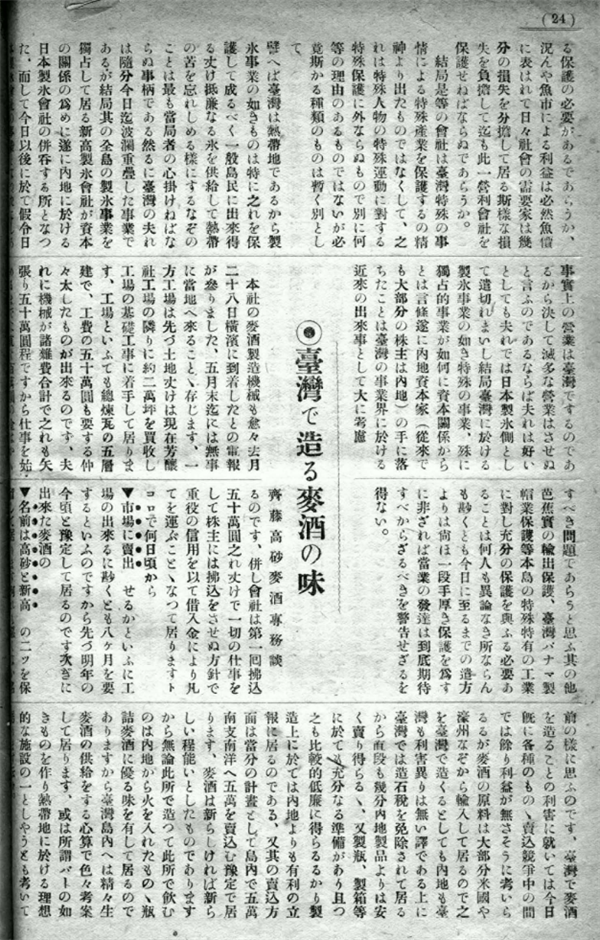 (24)
る保護の必要があるであらうか、
況んや魚市による利益は必然魚價
に表はれて日々社會の需要家は幾
分の損失を分擔して居る斯樣な損
失を負擔して迄も此一營利會社を
保護せねばならぬであらうか。
結局是等の會社は臺灣特殊の事
情による特殊産業を保護するの精
神より出たものではなくして、之
れは特殊人物の特殊運動に對する
特殊保護に外ならぬもので別に何
等の理由のあるものではないが必
竟斯かる種類のものは暫く別とし
て
譬へば臺灣は熱帶地であるから製
氷事業の如きものは特に之れを保
護して成るべく一般島民に出來得
る丈け抵廉なる氷を供給して熱帶
の苦を忘れしめる樣にするなぞの
ことは最も當局者の心掛けねばな
らぬ事柄である然るに臺灣の夫れ
は隨分今日迄波瀾重疊した事業で
あるが結局其の全島の製氷事業を
獨占して居る新高製氷會社が資本
の關係の爲めに遂に内地に於ける
日本製氷會社の併呑する所となつ
た、而して今日以後に於て假令日
事實上の營業は臺灣でするのであ
るから決して滅多な營業はさせぬ
と言ふのであるならば夫れは好い
としても夫れでは日本製氷側とし
て遣切れまいし結局臺灣に於ける
製氷事業の如き特殊の事業、殊に
獨占的事業が如何に資本關係から
とは言條遂に内地資本家(從來で
も大部分の株主は内地)の手に落
ちたことは臺灣の事業界に於ける
近來の出來事として大に考慮
すべき問題であらうと思ふ其の他
芭蕉實の輸出保護、臺灣パナマ製
帽業保護等本島の特殊特有の工業
に對し充分の保護を與ふる必要あ
ることは何人も異論なき所ならん
も尠くとも今日に至るまでの遣方
よりは尚ほ一段手厚き保護を爲す
に非ざれば當業の發達は到底期待
すべからざるべきを警告せざるを
得ない。
◉臺灣で造る麥酒の味
齊藤高砂麥酒專務談
本社の麥酒製造機械も愈々去月
二十八日横濱に到着したとの電報
が參りました、五月末迄には無事
に當地へ來ること丶存じます、一
方工場は先づ土地丈けは現在芳釀
社工場の隣りに約二萬坪を買收し
工場の基礎工事に着手して居りま
す、工場といふても總煉瓦の五層
建で、工費の五十萬圓も要する仲
々太したものが出來るのです、夫
れに機械が諸雜費合計で之れも矢
張り五十萬圓程ですから仕事を始
るのです、併し會社は第一回拂込
五十萬圓之れ丈けで一切の仕事を
して株主には拂込をさせぬ方針で
重役の信用を以て借入金により凡
てを運ぶこと丶なつて居りますト
コロで何日頃から
▼市場に賣出 せるかといふに工
場の出來るに尠くとも八ケ月を要
するといふのですから先づ明年の
今頃と豫定して居るのです次ぎに
出來た麥酒の
▼名前は高砂と新高 の二ツを保
前の樣に思ふのです、臺灣で麥酒
を造ることの利害に就いては今日
旣に各種のもの丶賣込競爭中の間
では餘り利益が無さそうに考いら
るるが麥酒の原料は大部分米國や
濠州なぞから輸入して居るので之
を臺灣で造くるとしても内地も臺
灣も利害異りは無い譯である上に
臺灣では造石税を免除されて居る
から直段も幾分内地製品よりは安
く賣り得らる丶、又製瓶、製箱等
に於ても充分なる準備があり且つ
之も比較的低廉に得らるるかり製
造上に於ては内地よりも有利の立
報に居るのである、又其の賣込方
面は當分の計畫として島内で五萬
南支南洋へ五萬を賣込む豫定で居
ります、麥酒は新らしければ新ら
しい程能いとしたものであります
から無論此所で造つて此所で飲む
のは内地から火を入れたもの丶瓶
詰麥酒に優る味を有して居るので
ありますから臺灣島内へは精々生
麥酒の供給をする心算で色々考案
して居ります、或は所謂バーの如
きものを作り熱帶地に於ける理想
的な施設の一としやうとも考いて